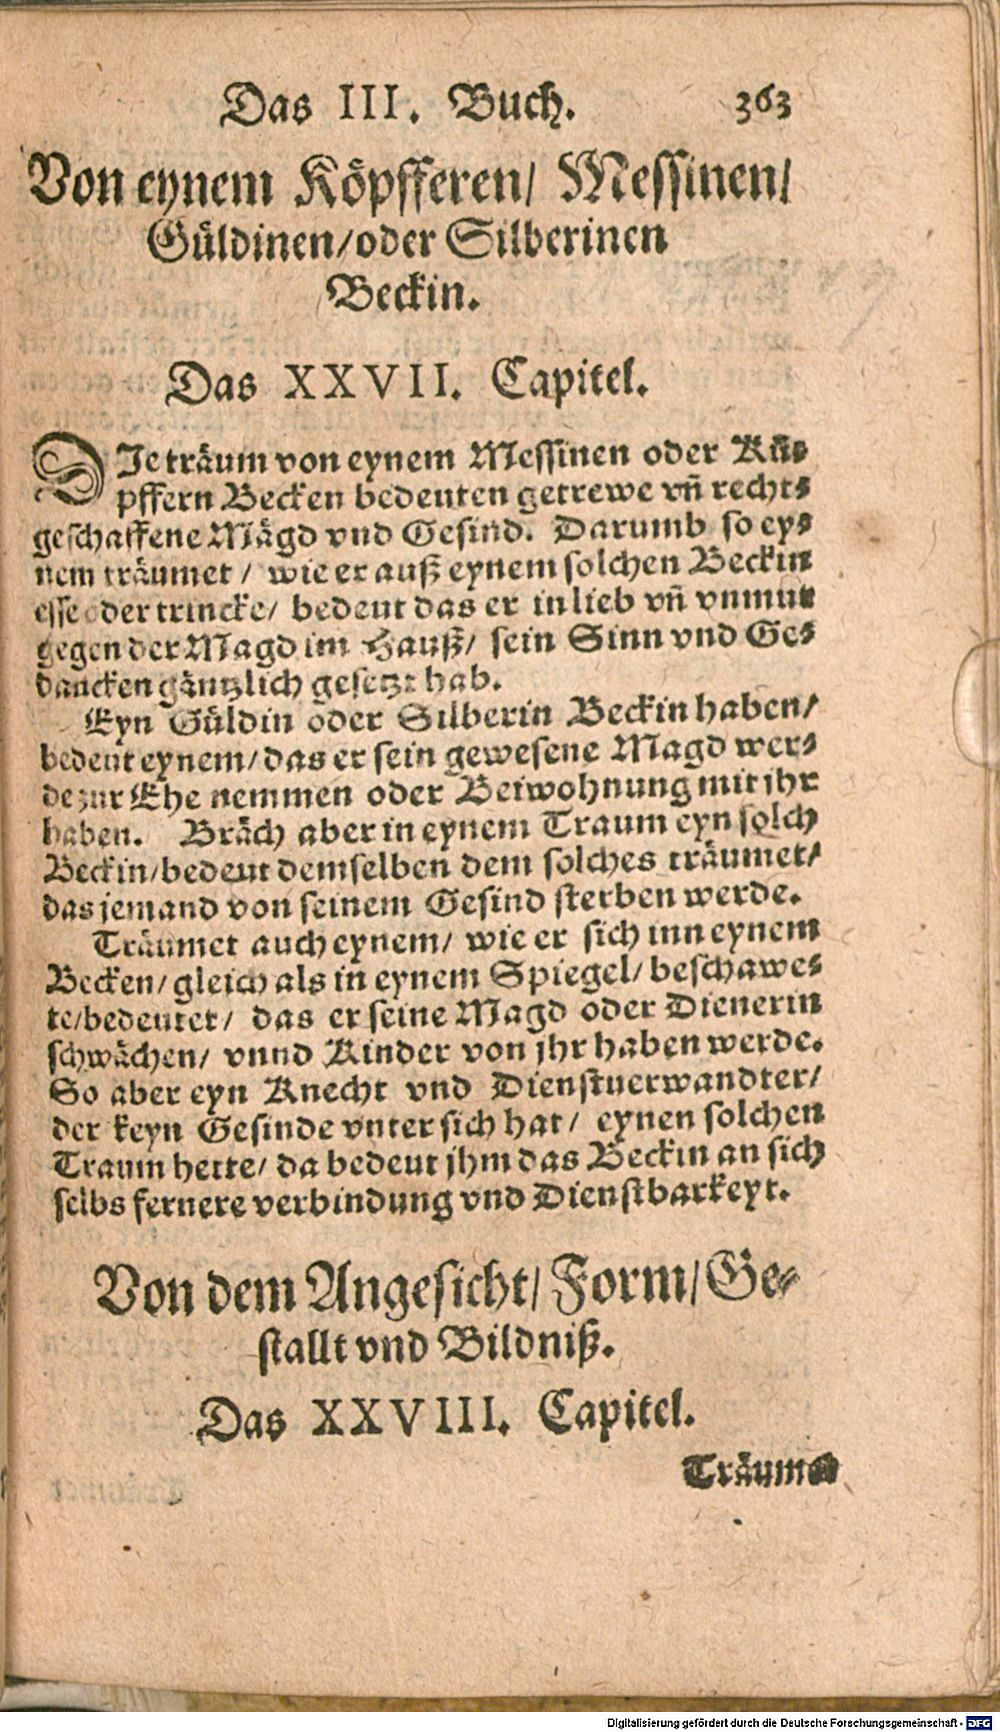 Das III. Buch. 363
Von eynem Köpfferen/ Messinen/
Güldinen/oder Silberinen
Beckin.
Das XXVII. Capitel.
DIe träum von eynem Messinen oder Kü-
pffern Becken bedeuten getrewe vñ recht-
geschaffene Mägd vnd Gesind. Darumb so ey-
nem träumet/ wie er auß eynem solchen Beckin
esse oder trincke/ bedeut das er in lieb vñ vnmut
gegen der Magd im Hauß/ sein Sinn vnd Ge-
dancken gäntzlich gesetzt hab.
Eyn Güldin oder Silberin Beckin haben/
bedeut eynem/das er sein gewesene Magd wer-
de zur Ehe nemmen oder Beiwohnung mit jhr
haben. Bräch aber in eynem Traum eyn solch
Beckin/bedeut demselben dem solches träumet/
das jemand von seinem Gesind sterben werde.
Träumet auch eynem/ wie er sich inn eynem
Becken/gleich als in eynem Spiegel/beschawe-
te/bedeutet/ das er seine Magd oder Dienerin
schwächen/ vnnd Kinder von jhr haben werde.
So aber eyn Knecht vnd Dienstuerwandter/
der keyn Gesinde vnter sich hat/ eynen solchen
Traum hette/da bedeut jhm das Beckin an sich
selbs fernere verbindung vnd Dienstbarkeyt.
Von dem Angesicht/Form/Ge-
stallt vnd Bildniß.
Das XXVIII. Capitel.
Träume
Digitalisierung gefördert durch die Deutsche Forschungsgemeinschaft - DFG